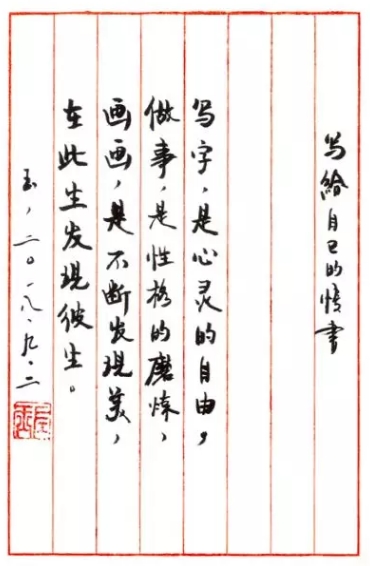 写给自己的情书
写字，是心灵的自由，
做事，是性格的磨炼，
画画，是不断发现美，
在此生发现彼生。
玉，二〇一八、九、二